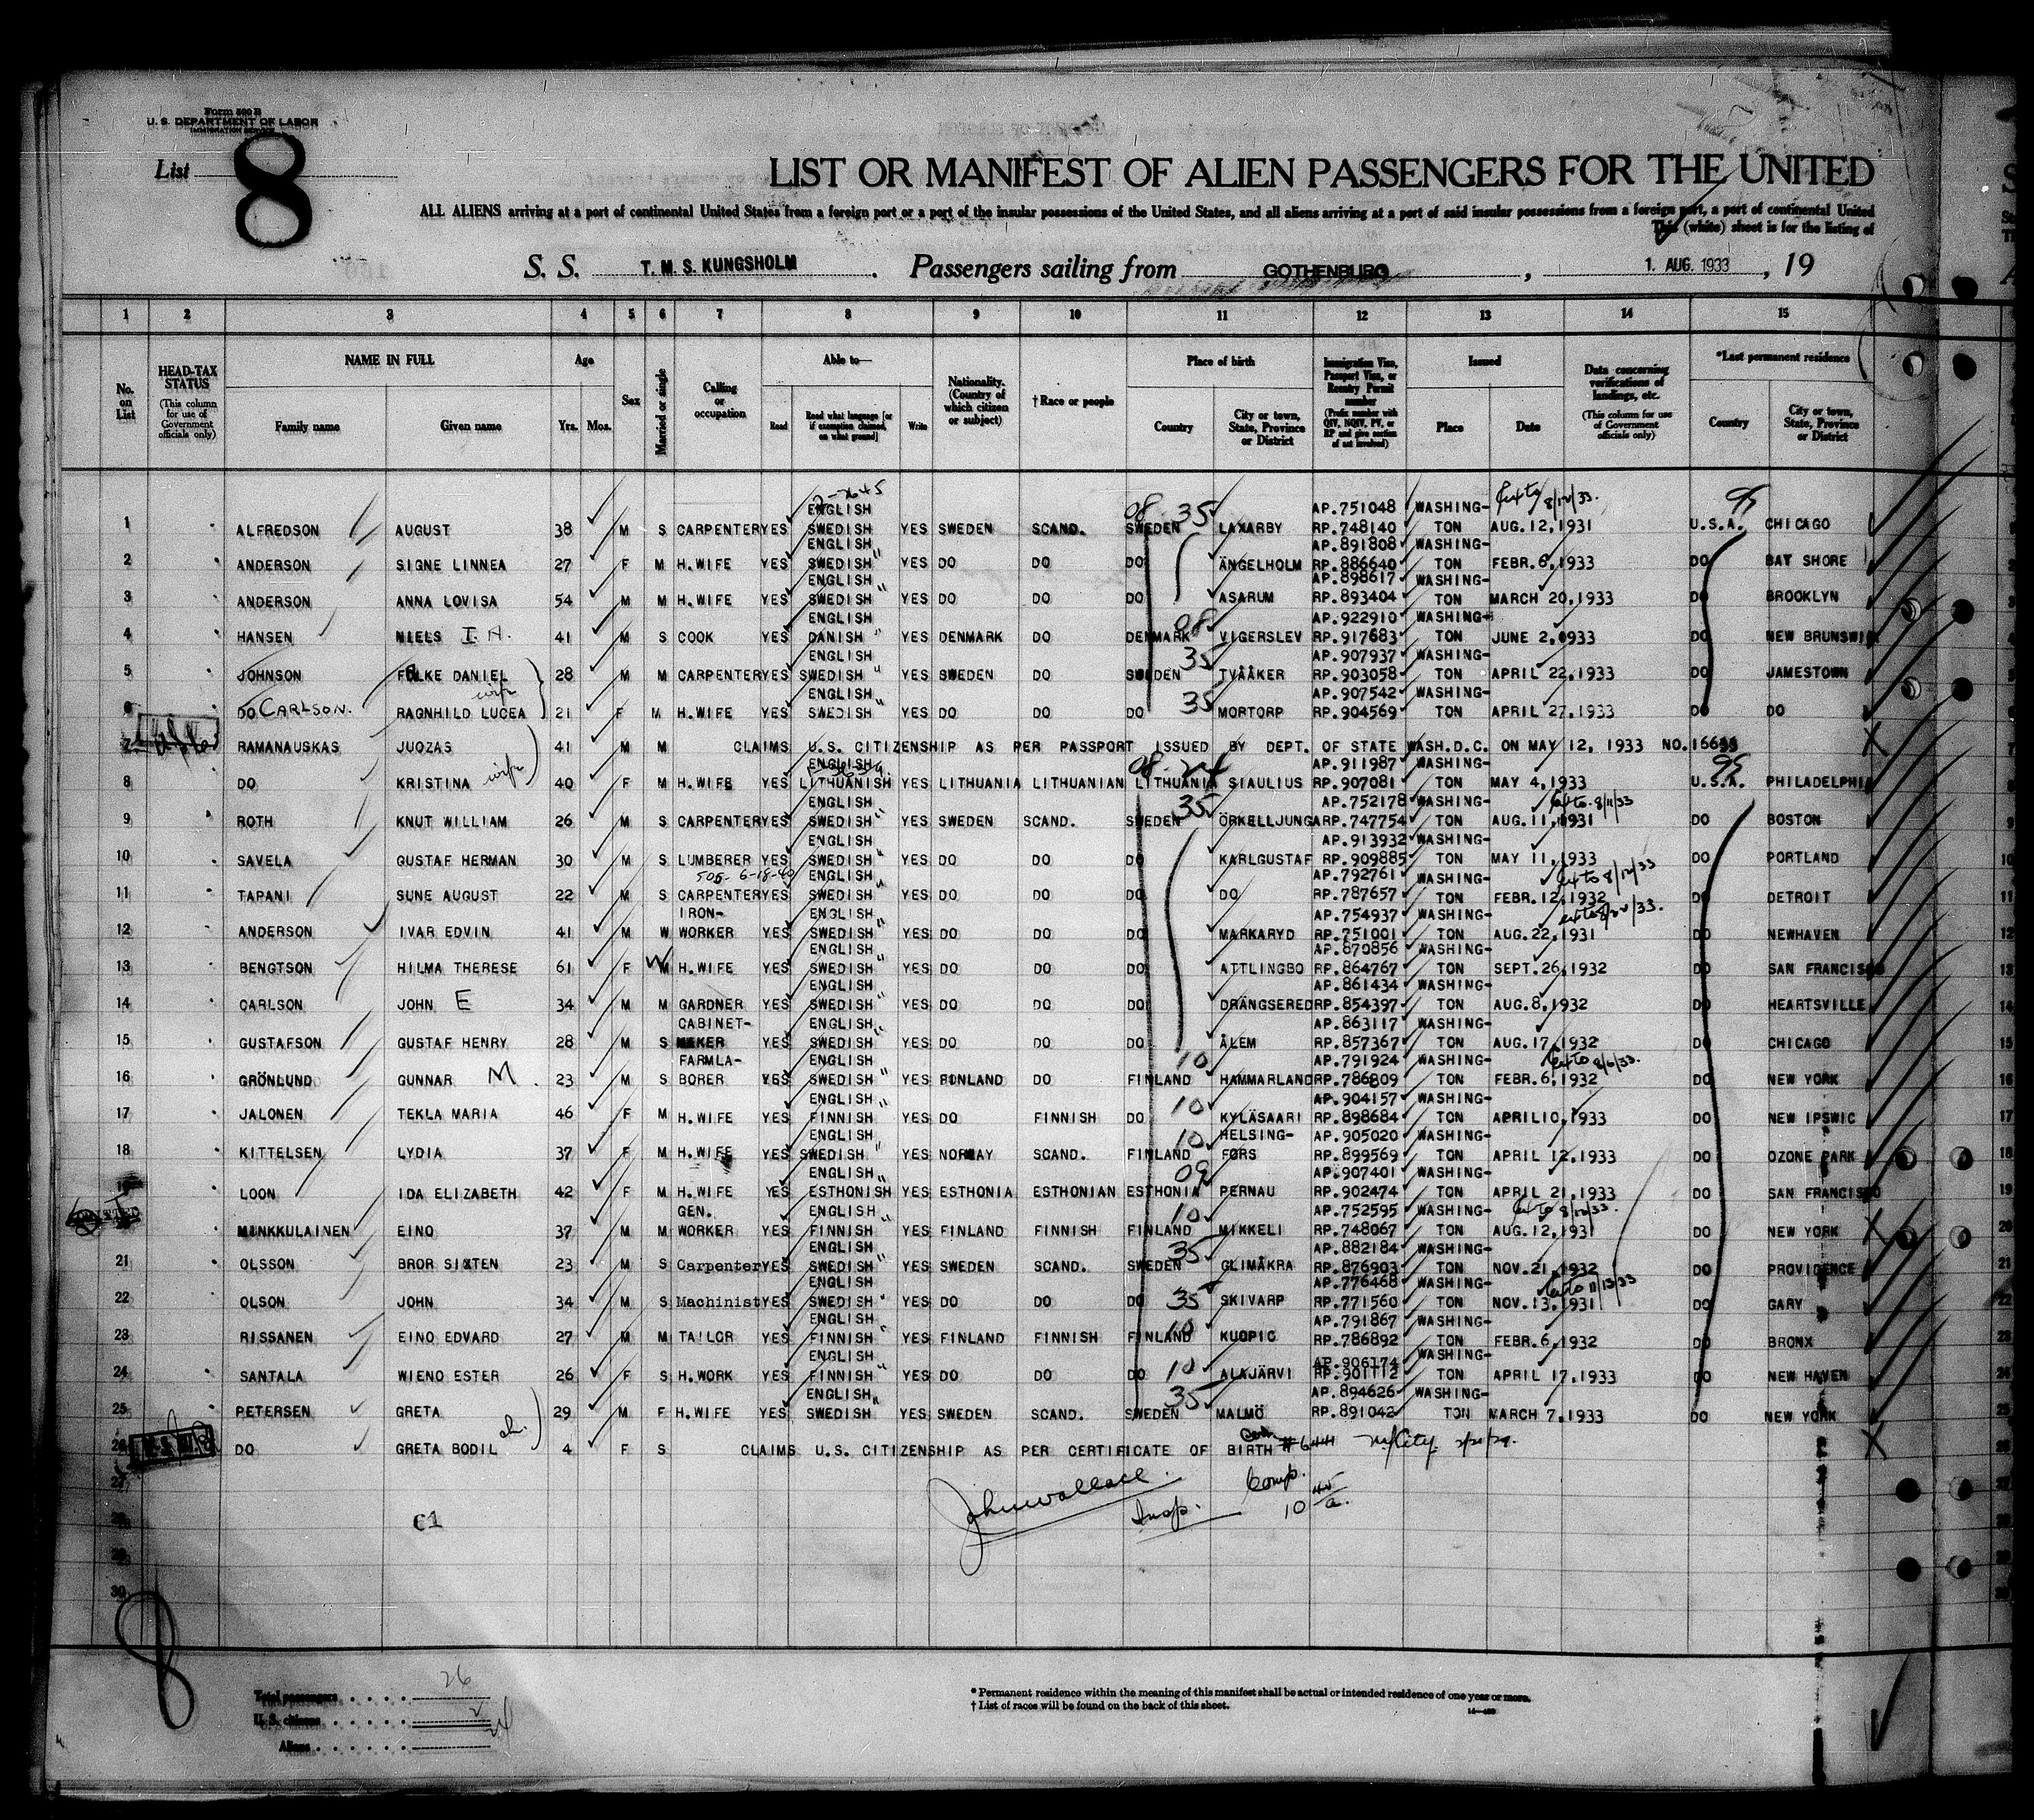 Form 500 B
U. S. DEPARTMENT OF LABOR
IMMIGRATION SERVICE
List 8
LIST OR MANIFEST OF ALIEN PASSENGERS FOR THE UNITED
ALL ALIENS arriving at a port of continental United States from a foreign port or a port of the insular possessions of the United States, and all aliens arriving at a port of said insular possessions from a foreign port, a port of continental United
This (white) sheet is for the listing of
S. S. T. M. S. KUNGSHOLM . Passengers sailing from GOTHENBURG , 1. AUG. 1933 , 19
1 2 3 4 5 6 7 8 9 10 11 12 13 14 15
No. on List
HEAD-TAX STATUS (This column for use of Government officials only)
NAME IN FULL Family name Given name
Age Yrs. Mos.
Sex
Married or single
Calling or occupation
Able to— Read Read what language [or if exemption claimed, on what ground] Write
Nationality. (Country of which citizen or subject)
† Race or people
Place of birth Country City or town, State, Province or District
Immigration Visa, Passport Visa, or Reentry Permit number (Prefix number with QIV, NQIV, PV, or RP and give section of act involved)
Issued Place Date
Data concerning verifications of landings, etc. (This column for use of Government officials only)
*Last permanent residence Country City or town, State, Province or District
ENGLISH AP.751048 WASHING- 8/12/33.
1 ALFREDSON AUGUST 38 M S CARPENTER YES SWEDISH YES SWEDEN SCAND. 08 35 SWEDEN LAXARBY RP.748140 TON AUG.12,1931 U.S.A. CHICAGO
ENGLISH AP.891808 WASHING-
2 ANDERSON SIGNE LINNEA 27 F M H.WIFE YES SWEDISH " YES DO DO DO ÄNGELHOLM RP.886640 TON FEBR.6,1933 DO BAY SHORE
ENGLISH AP.898617 WASHING-
3 ANDERSON ANNA LOVISA 54 M M H.WIFE YES SWEDISH " YES DO DO DO ASARUM RP.893404 TON MARCH 20,1933 DO BROOKLYN
ENGLISH 08 AP.922910 WASHING-
4 HANSEN NIELS I. A. 41 M S COOK YES DANISH " YES DENMARK DO DENMARK VIGERSLEV RP.917683 TON JUNE 2,1933 DO NEW BRUNSWI
ENGLISH 35 AP.907937 WASHING-
5 JOHNSON FOLKE DANIEL 28 M M CARPENTER YES SWEDISH " YES SWEDEN DO SWEDEN TVÅÅKER RP.903058 TON APRIL 22,1933 DO JAMESTOWN
wife ENGLISH 35 AP.907542 WASHING-
6 DO CARLSON. RAGNHILD LUCEA 21 F M H.WIFE YES SWEDISH " YES DO DO DO MORTORP RP.904569 TON APRIL 27,1933 DO DO
7 RAMANAUSKAS JUOZAS 41 M M CLAIMS U.S. CITIZENSHIP AS PER PASSPORT ISSUED BY DEPT. OF STATE WASH.D.C. ON MAY 12, 1933
ENGLISH AP.911987 WASHING-
8 DO KRISTINA wife 40 F M H.WIFE YES LITHUANISH YES LITHUANIA LITHUANIAN LITHUANIA SIAULIUS RP.907081 TON MAY 4,1933 U.S.A. PHILADELPHI
ENGLISH 35 AP.752178 WASHING- 8/11/33
9 ROTH KNUT WILLIAM 26 M S CARPENTER YES SWEDISH " YES SWEDEN SCAND. SWEDEN ÖRKELLJUNGA RP.747754 TON AUG.11,1931 DO BOSTON
ENGLISH AP.913932 WASHING-
10 SAVELA GUSTAF HERMAN 30 M S LUMBERER YES SWEDISH " YES DO DO DO KARLGUSTAF RP.909885 TON MAY 11,1933 DO PORTLAND
505- 6-18-40 ENGLISH AP.792761 WASHING- 8/12/33
11 TAPANI SUNE AUGUST 22 M S CARPENTER YES SWEDISH " YES DO DO DO DO RP.787657 TON FEBR.12,1932 DO DETROIT
IRON- ENGLISH AP.754937 WASHING- 8/22/33.
12 ANDERSON IVAR EDVIN 41 M W WORKER YES SWEDISH " YES DO DO DO MARKARYD RP.751001 TON AUG.22,1931 DO NEWHAVEN
ENGLISH AP.870856 WASHING-
13 BENGTSON HILMA THERESE 61 F W H.WIFE YES SWEDISH " YES DO DO DO ATTLINGBO RP.864767 TON SEPT.26,1932 DO SAN FRANCISCO
ENGLISH AP.861434 WASHING-
14 CARLSON JOHN E 34 M M GARDNER YES SWEDISH " YES DO DO DO DRÄNGSERED RP.854397 TON AUG.8,1932 DO HEARTSVILLE
CABINET- ENGLISH AP.863117 WASHING-
15 GUSTAFSON GUSTAF HENRY 28 M S MAKER YES SWEDISH " YES DO DO DO ÅLEM RP.857367 TON AUG.17,1932 DO CHICAGO
FARMLA- ENGLISH 10 AP.791924 WASHING- 8/6/33.
16 GRÖNLUND GUNNAR M. 23 M S BORER YES SWEDISH " YES FINLAND DO FINLAND HAMMARLAND RP.786809 TON FEBR.6,1932 DO NEW YORK
ENGLISH 10 AP.904157 WASHING-
17 JALONEN TEKLA MARIA 46 F M H.WIFE YES FINNISH " YES DO FINNISH DO KYLÄSAARI RP.898684 TON APRIL10,1933 DO NEW IPSWIC
ENGLISH 10 HELSING- AP.905020 WASHING-
18 KITTELSEN LYDIA 37 F M H.WIFE YES SWEDISH " YES NORWAY SCAND. FINLAND FORS RP.899569 TON APRIL 12,1933 DO OZONE PARK
ENGLISH 09 AP.907401 WASHING-
19 LOON IDA ELIZABETH 42 F M H.WIFE YES ESTHONISH YES ESTHONIA ESTHONIAN ESTHONIA PERNAU RP.902474 TON APRIL 21,1933 DO SAN FRANCISCO
GEN. ENGLISH 10 AP.752595 WASHING- 8/12/33.
20 MINKKULAINEN EINO 37 M M WORKER YES FINNISH " YES FINLAND FINNISH FINLAND MIKKELI RP.748067 TON AUG.12,1931 DO NEW YORK
ENGLISH 35 AP.882184 WASHING-
21 OLSSON BROR SIXTEN 23 M S Carpenter YES SWEDISH " YES SWEDEN SCAND. SWEDEN GLIMÅKRA RP.876903 TON NOV.21,1932 DO PROVIDENCE
ENGLISH AP.776468 WASHING- 11/13/33
22 OLSON JOHN 34 M S Machinist YES SWEDISH " YES DO DO DO 35 SKIVARP RP.771560 TON NOV.13,1931 DO GARY
ENGLISH AP.791867 WASHING-
23 RISSANEN EINO EDVARD 27 M M TAILOR YES FINNISH " YES FINLAND FINNISH FINLAND 10 KUOPIO RP.786892 TON FEBR.6,1932 DO BRONX
ENGLISH AP.906174 WASHING-
24 SANTALA WIENO ESTER 26 F S H.WORK YES FINNISH " YES DO DO DO 10 ALAJÄRVI RP.901112 TON APRIL 17,1933 DO NEW HAVEN
ENGLISH 35 AP.894626 WASHING-
25 PETERSEN GRETA 29 M F H.WIFE YES SWEDISH " YES SWEDEN SCAND. SWEDEN MALMÖ RP.891042 TON MARCH 7,1933 DO NEW YORK
26 DO GRETA BODIL ch. 4 F S CLAIMS U.S. CITIZENSHIP AS PER CERTIFICATE OF BIRTH
27
John Wallace Insp. Comp. 10 45/a.
28 C1
29
30
8
Total passengers . . . . . 26
U. S. citizens . . . . . 2
Aliens . . . . . . 24
* Permanent residence within the meaning of this manifest shall be actual or intended residence of one year or more.
† List of races will be found on the back of this sheet.